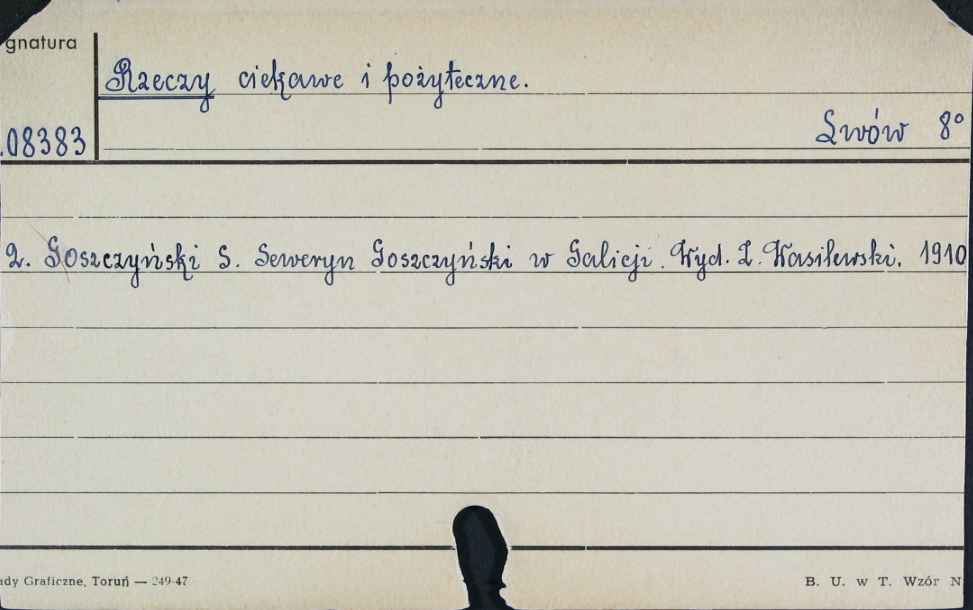 gnatura
Rzeczy ciekawe i pożyteczne.
08383
Lwów 8°
2. Goszczyński S. Seweryn Goszczyński w Galicji. Wyd. Z. Wasilewski. 1910
ady Graficzne, Toruń — 249-47
B. U. w T. Wzór N